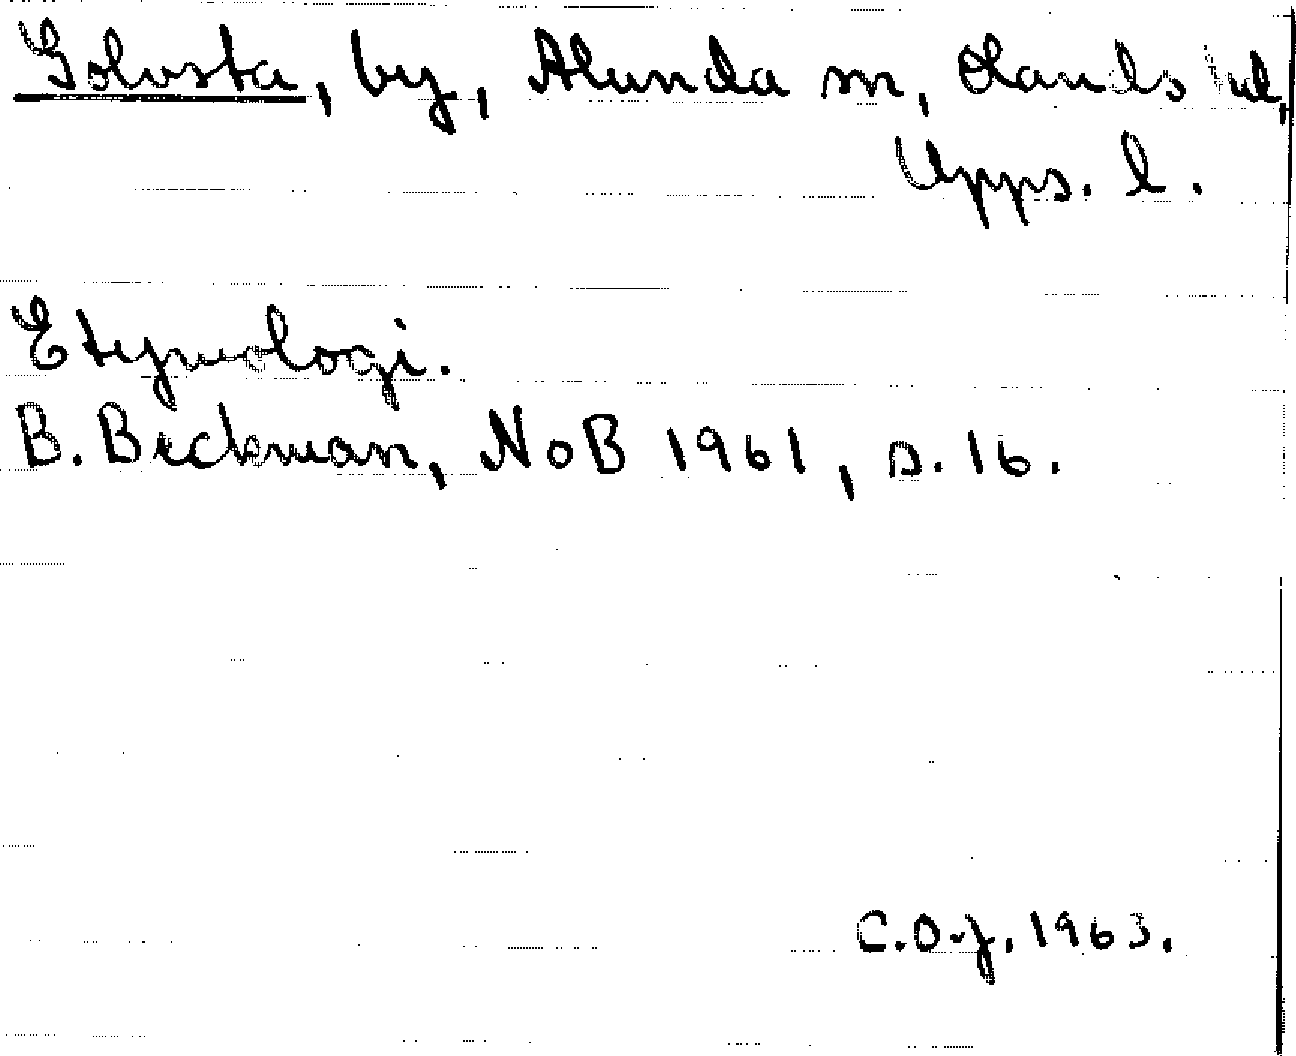 Golvsta, by, Alunda sn, Olands hd,
Upps. l.
Etymologi.
B. Beckman, NoB 1961, s. 16.
C.O-j. 1963.